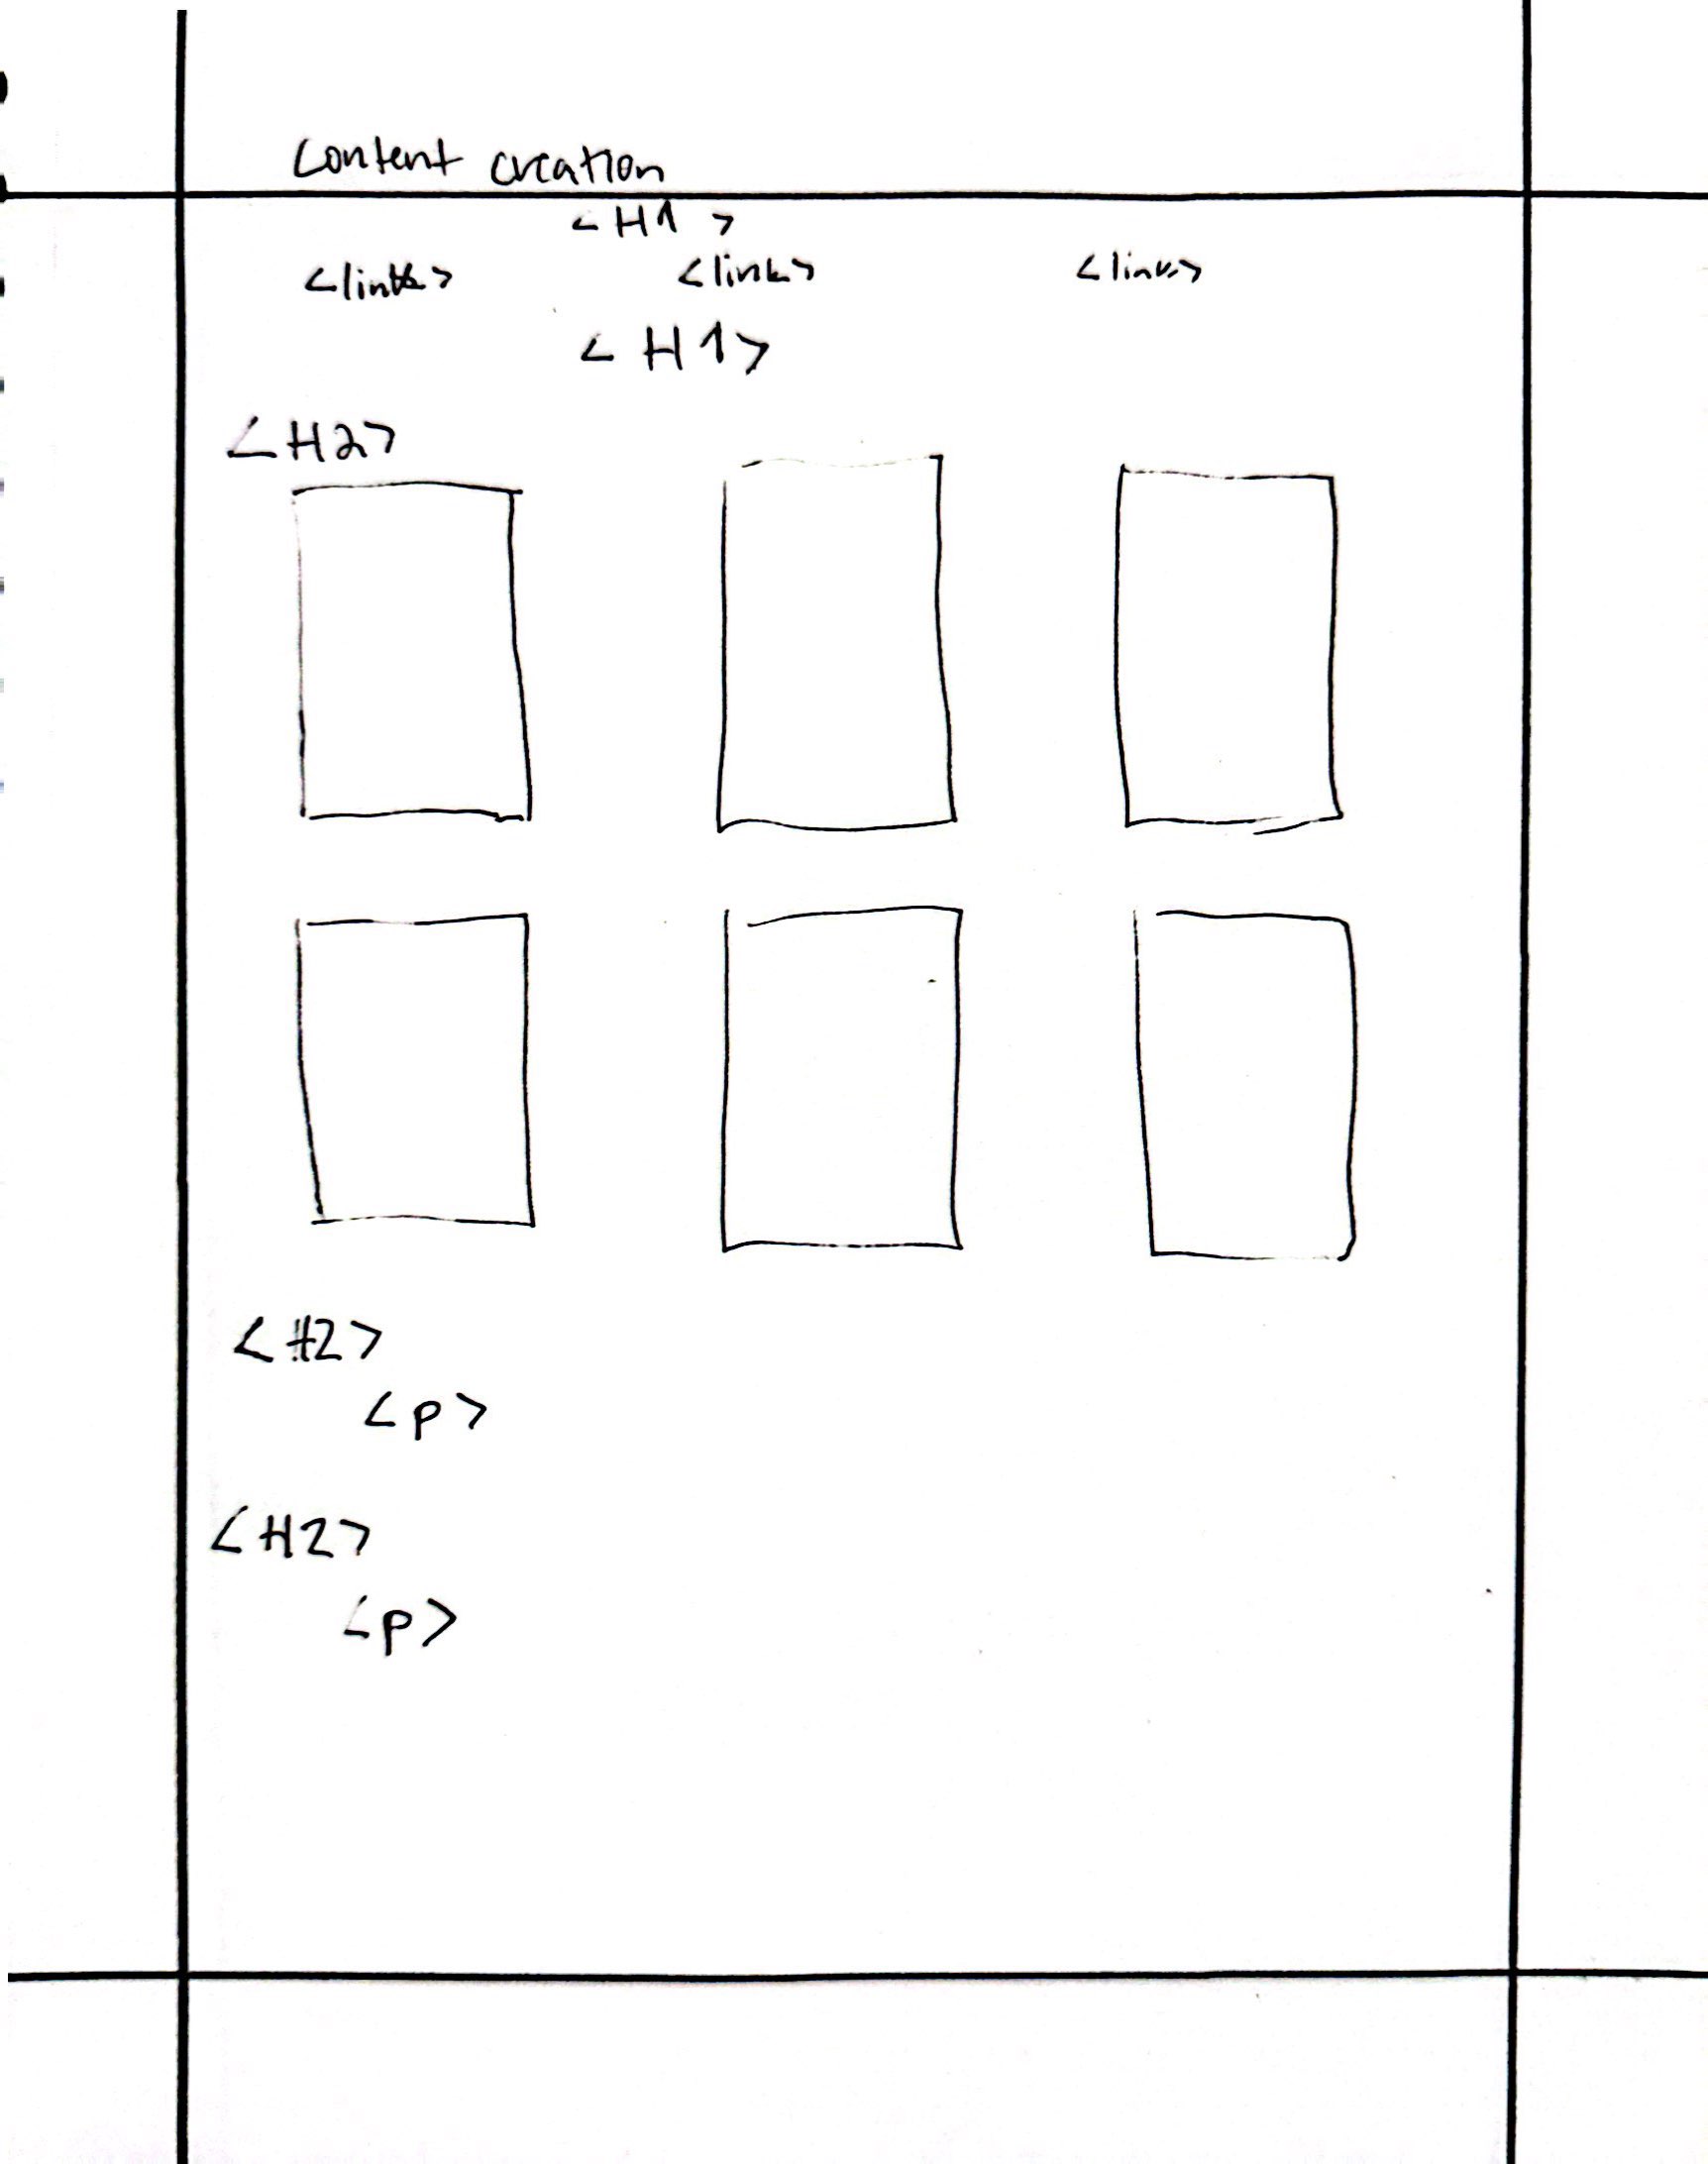 Content creation
<H1>
<link> <link> <link>
<H1>
<H2>
<H2>
<p>
<H2>
<p>